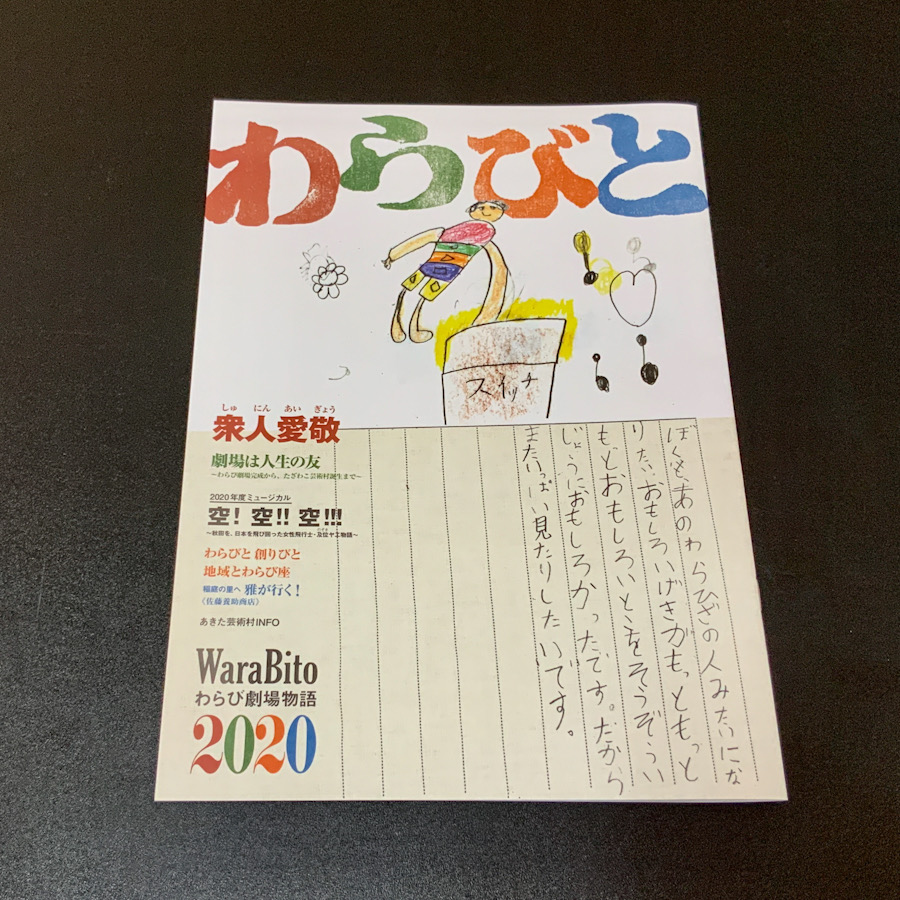 わらびと
スイッチ
しゅ にん あい ぎょう
衆人愛敬
劇場は人生の友
～わらび劇場完成から、たざわこ芸術村誕生まで～
2020年度ミュージカル
空! 空!! 空!!!
～秋田を、日本を飛び回った女性飛行士・及位ヤヱ物語～
わらびと 創りびと
地域とわらび座
稲庭の里へ 雅が行く!
(佐藤養助商店)
あきた芸術村INFO
WaraBito
わらび劇場物語
2020
ぼくも、あのわらびざの人みたいにな
りたい。おもしろいげきがもっともっと
もっとおもしろいことをそうぞうい
じょうにおもしろかったです。だから
またいっぱい見たりしたいです。